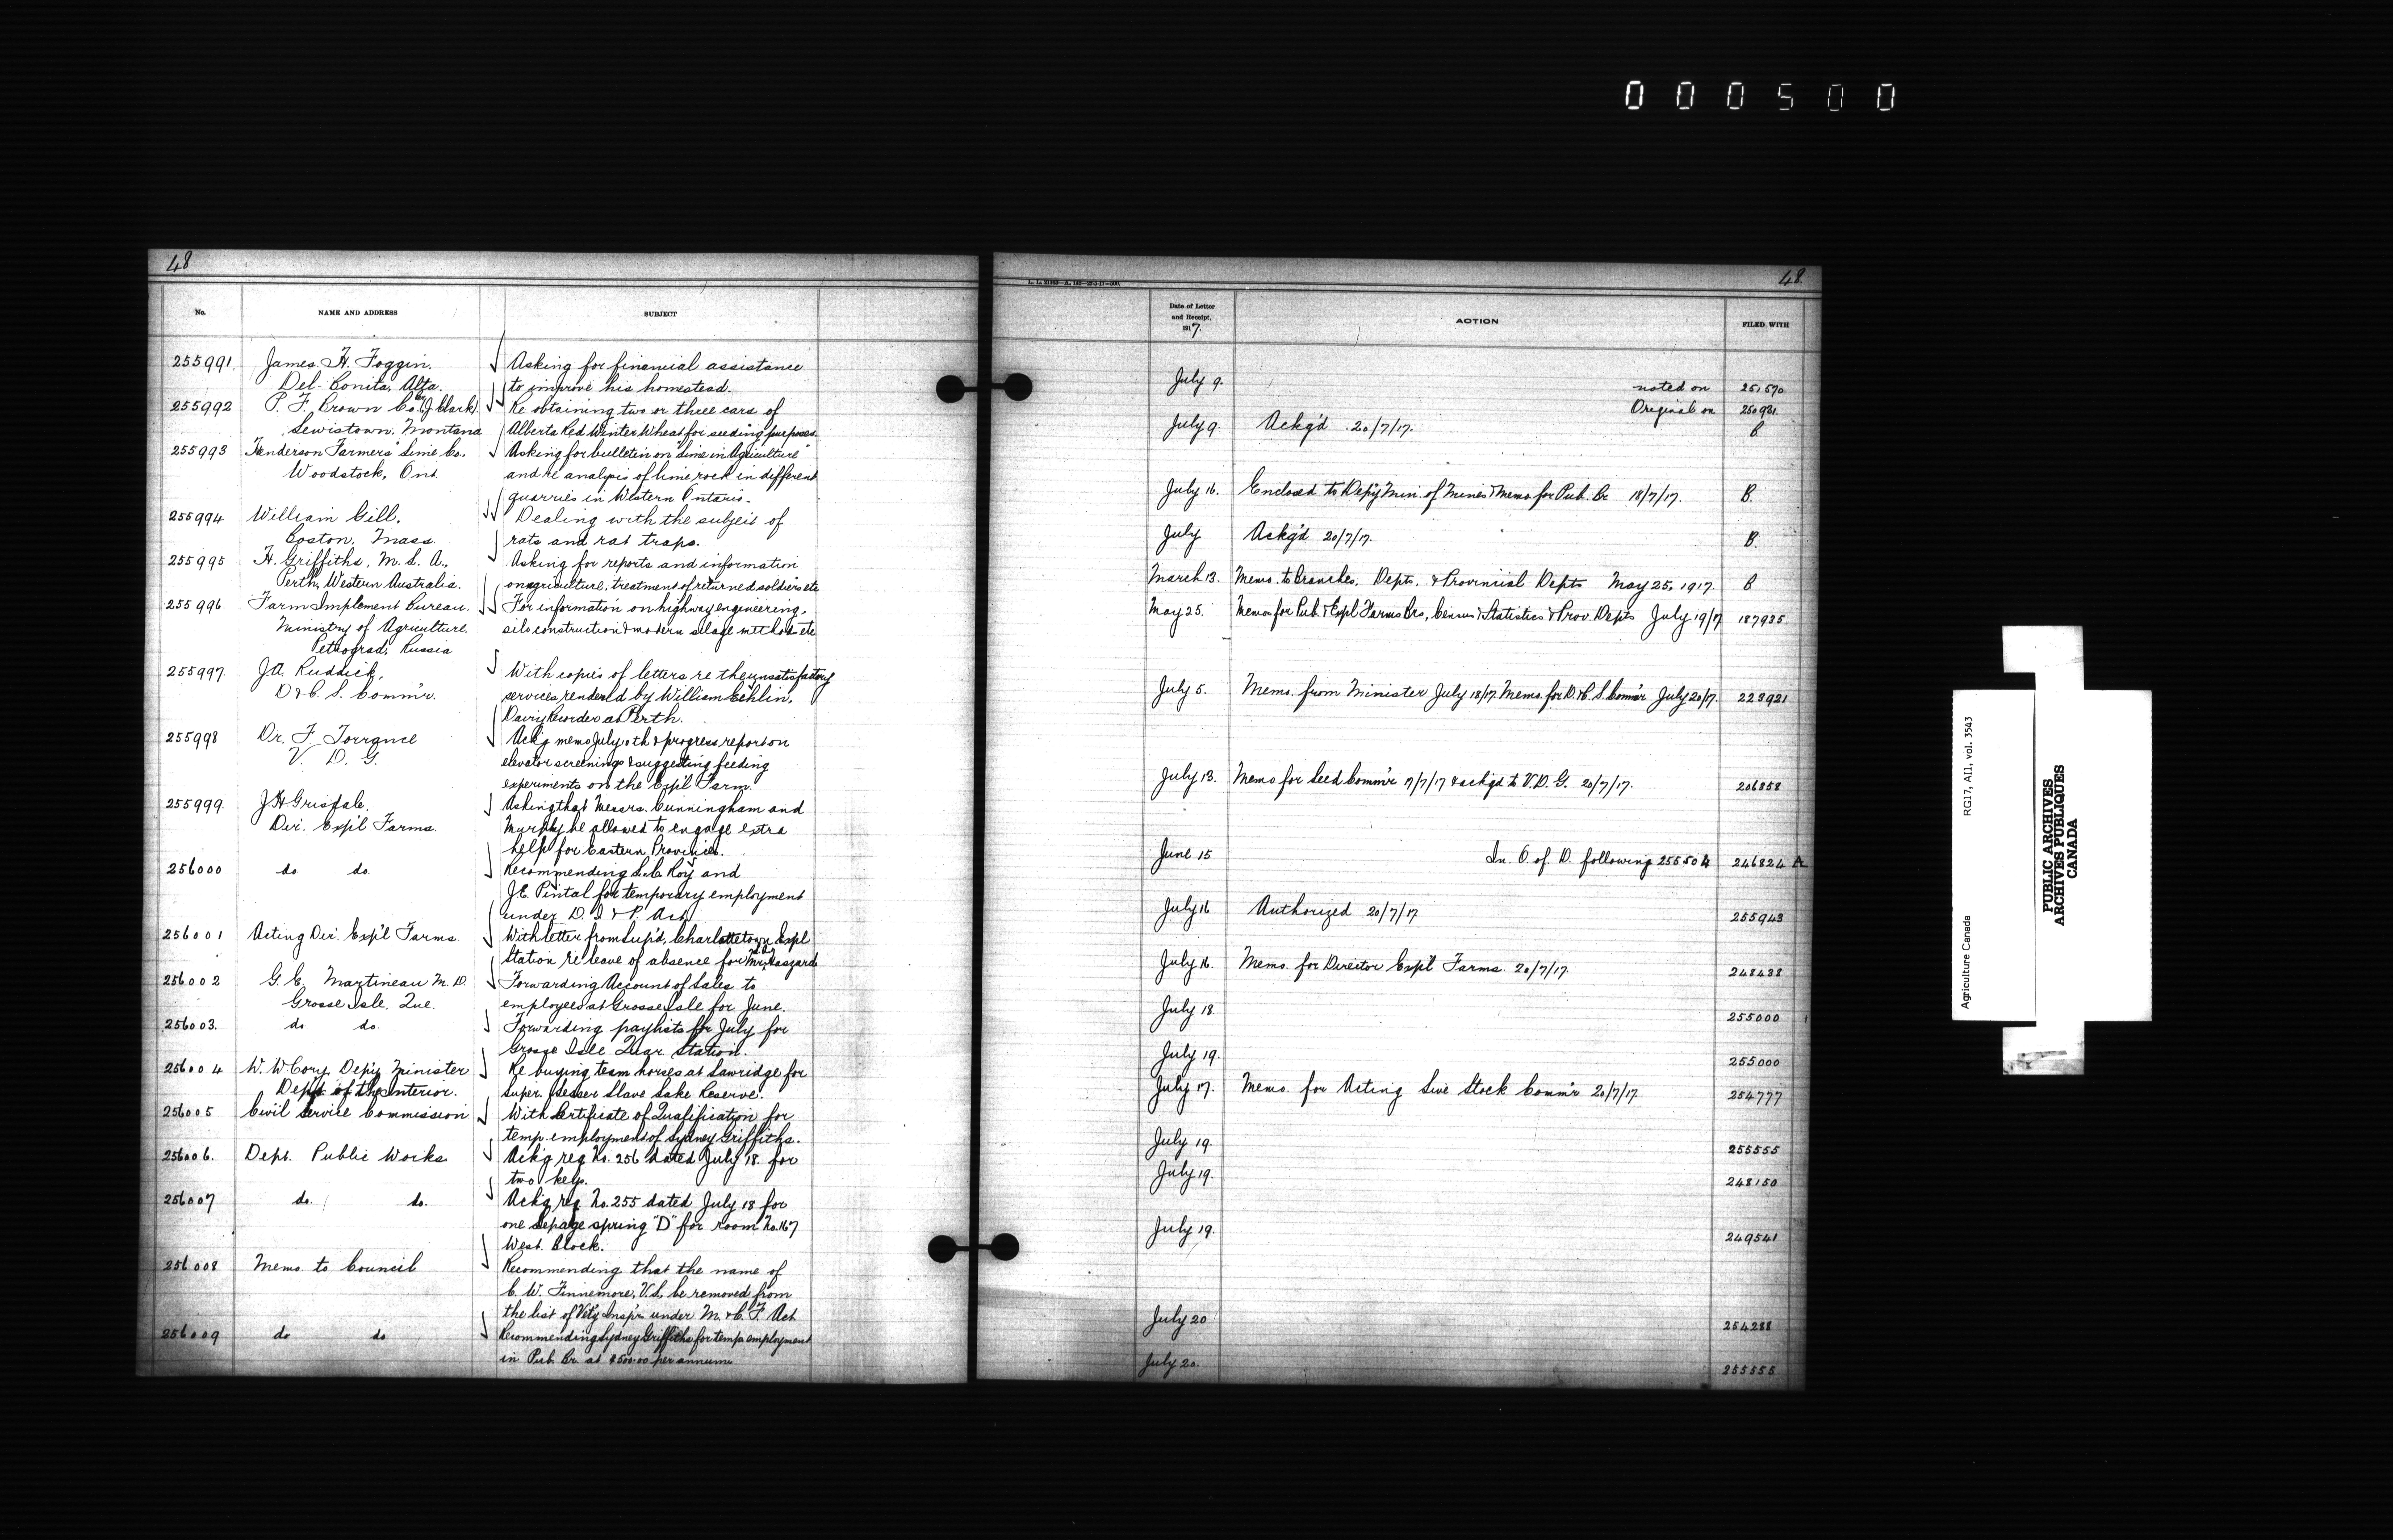 000500
48
No.
NAME AND ADDRESS
SUBJECT
255991 James H. Foggin, Asking for financial assistance
Del Bonita, Alta. to improve his homestead.
255992 P. F. Brown Co. (J Clark) Re obtaining two or three cars of
Lewistown, Montana Alberta Red Winter Wheat for seeding purposes
255993 Henderson Farmers' Lime Co. Asking for bulletin on "Lime in Agriculture"
Woodstock, Ont. and re analysis of lime rock in different
quarries in Western Ontario.
255994 William Gill, Dealing with the subject of
Boston, Mass. rats and rat traps.
255995 H. Griffiths, M. L. A., Asking for reports and information
Perth, Western Australia. on agriculture, treatment of returned soldiers etc
255996 Farm Implement Bureau. For information on highway engineering,
Ministry of Agriculture. silo construction & modern silage methods etc
Petrograd, Russia
255997 J.A. Ruddick, With copies of letters re the unsatisfactory
D. & C. S. Comm'r. services rendered by William Echlin,
Dairy Recorder at Perth.
255998 Dr. F Torrance Ack'g memo July 10th & progress report on
V. D. G. elevator screenings & suggesting feeding
experiments on the Exp'l Farm.
255999 J H Grisdale, Asking that Messrs. Cunningham and
Dir. Exp'l Farms. Murphy be allowed to engage extra
help for Eastern Provinces.
256000 do do. Recommending L. C. Roy and
J.E. Pintal for temporary employment
under D. I & P. Act
256001 Acting Dir. Exp'l Farms. With letter from Supt., Charlottetown Expl
Station re leave of absence for Mr. Haszard
256002 G. E. Martineau M. D. Forwarding Account of Sales to
Grosse Isle, Que. employees at Grosse Isle for June.
256003. do. do. Forwarding paylists for July for
Grosse Isle Quar. Station.
256004 W. W Cory, Dep'y Minister Re buying team horses at Sawridge for
Dept of the Interior. Super. Lesser Slave Lake Reserve.
256005 Civil Service Commission With Certificate of Qualification for
temp. employment of Sydney Griffiths.
256006. Dept. Public Works Ack'g req No. 256 dated July 18 for
two keys.
256007 do. do. Ack'g req No. 255 dated July 18 for
one Lepage spring "D" for room No. 167
West. Block.
256008 Memo. to Council Recommending that the name of
C. W. Finnemore, V.S. be removed from
the list of Vet'y Insp'rs under M. & C. F. Act
256009 do do Recommending Sydney Griffiths for temp employment
in Pub. Br. at $500.00 per annum
48
Date of Letter
and Receipt,
1917.
ACTION
FILED WITH
July 9. noted on 251570
Original on 250931.
July 9. Ackg'd 20/7/17. B
July 16. Enclosed to Dep'y Min. of Mines & Memo for Pub. Br 18/7/17. B.
July Ackg'd 20/7/17. B.
March 13. Memo. to Branches, Depts. & Provincial Depts May 25, 1917. B
May 25. Memo for Pub. & Expl Farms Brs, Census & Statistics & Prov. Depts July 19/17 187935
July 5. Memo. from Minister July 18/17. Memo. for D. & C. S. Comm'r July 20/17. 223921
July 13. Memo for Seed Comm'r 17/7/17 & ackg'd to V. D. G. 20/7/17. 206858
June 15 In O. of D. following 255504 246824 A
July 16 Authorized 20/7/17 255943
July 16. Memo. for Director Exp'l Farms 20/7/17. 248438
July 18 255000
July 19. 255000
July 17. Memo. for Acting Live Stock Comm'r 20/7/17 254777
July 19. 255555
July 19. 248150
July 19. 249541
July 20 254288
July 20. 255555
RG17, A11, vol. 3543
Agriculture Canada
PUBLIC ARCHIVES
ARCHIVES PUBLIQUES
CANADA